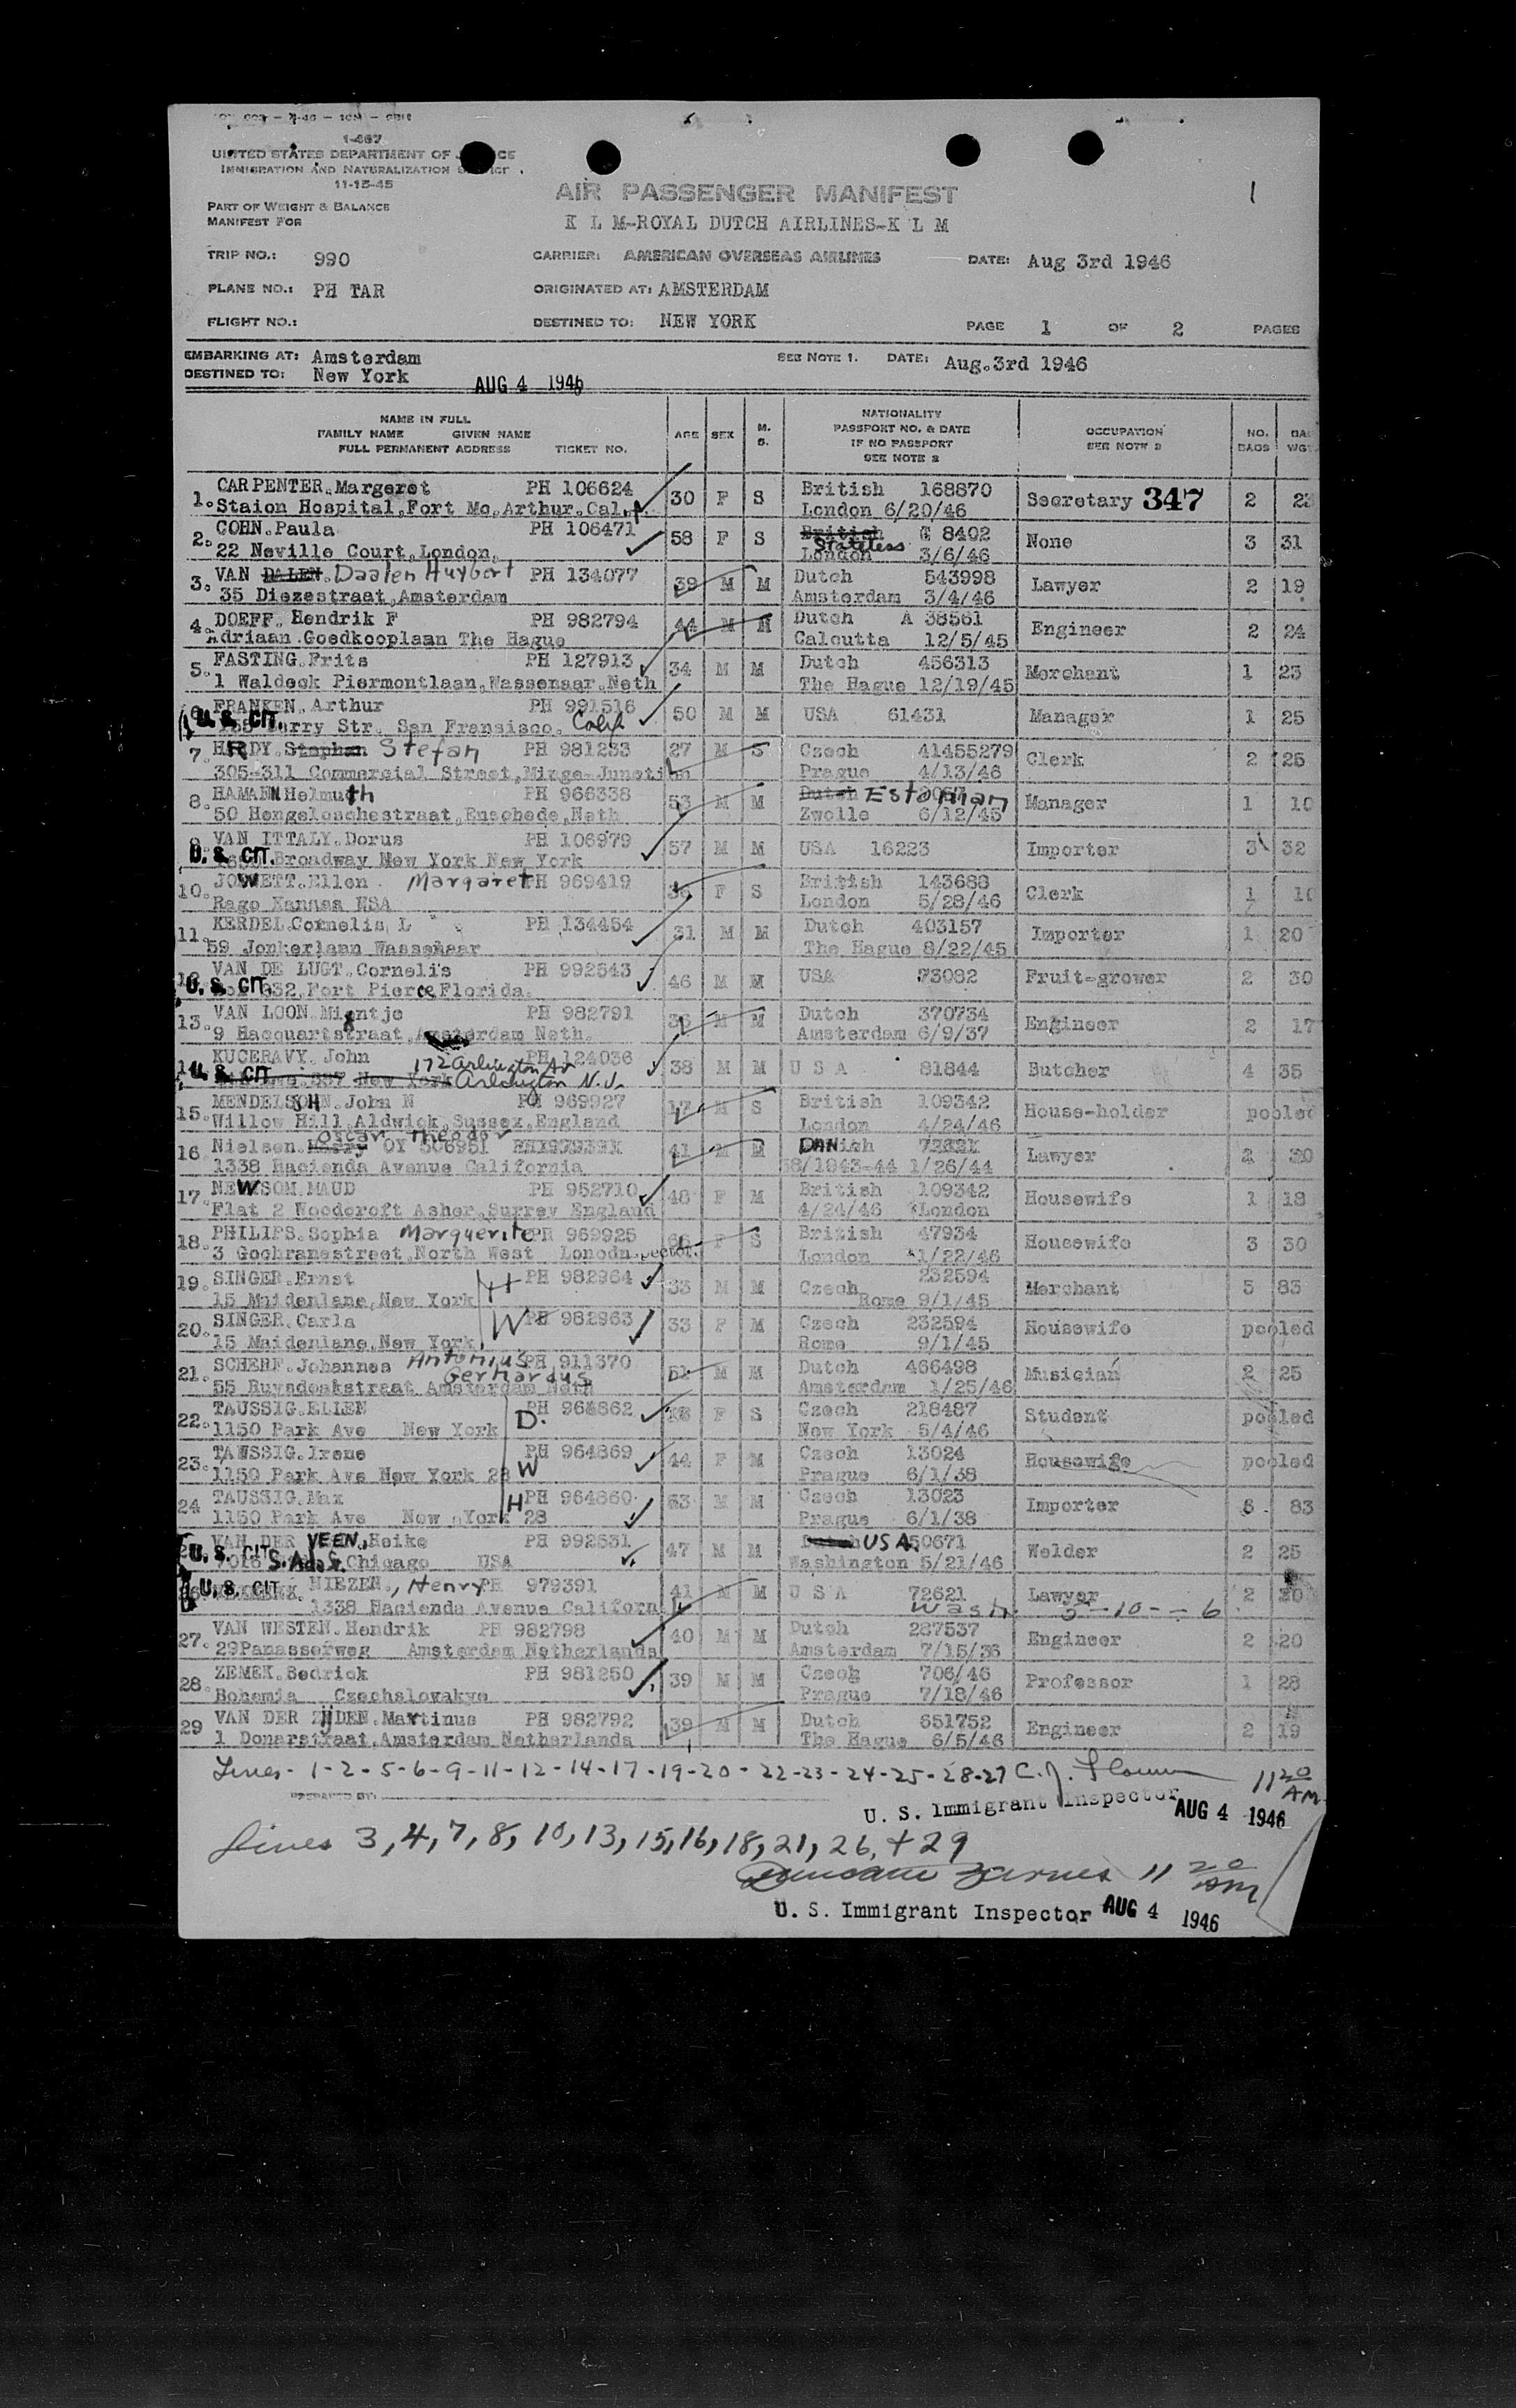 1-467
UNITED STATES DEPARTMENT OF
IMMIGRATION AND NATURALIZATION
11-15-45
PART OF WEIGHT & BALANCE
MANIFEST FOR
AIR PASSENGER MANIFEST
K L M-ROYAL DUTCH AIRLINES-K L M
1
TRIP NO.: 990 CARRIER: AMERICAN OVERSEAS AIRLINES DATE: Aug 3rd 1946
PLANE NO.: PH TAR ORIGINATED AT: AMSTERDAM
FLIGHT NO.: DESTINED TO: NEW YORK PAGE 1 OF 2 PAGES
EMBARKING AT: Amsterdam SEE NOTE 1. DATE: Aug.3rd 1946
DESTINED TO: New York AUG 4 1946
NAME IN FULL
FAMILY NAME GIVEN NAME
FULL PERMANENT ADDRESS TICKET NO. AGE SEX M. S.
NATIONALITY
PASSPORT NO. & DATE
IF NO PASSPORT
SEE NOTE 2
OCCUPATION
SEE NOTE 3
NO.
BAGS
CARPENTER.Margeret PH 106624 30 F S British 168870 Secretary 347 2
1. Staion Hospital.Fort Mc.Arthur.Cal. London 6/20/46
COHN.Paula PH 106471 58 F S British G 8402 None 3 31
2. 22 Neville Court.London. Stateless London 3/6/46
VAN DALEN. Daalen Huybert PH 134077 39 M M Dutch 543998 Lawyer 2 19
3. 35 Diezestraat,Amsterdam Amsterdam 3/4/46
DOEFF. Hendrik F PH 982794 44 M M Dutch A 38561 Engineer 2 24
4. Adriaan.Goedkooplaan The Hague Calcutta 12/5/45
FASTING.Frits PH 127913 34 M M Dutch 456313 Merchant 1 23
5. 1 Waldeck Piermontlaan.Wassenaar.Neth The Hague 12/19/45
FRANKEN. Arthur PH 991516 50 M M USA 61431 Manager 1 25
U. S. CIT. Str. San Fransisco. Calif
HARDY.Stephan Stefan PH 981233 27 M S Czech 41455279 Clerk 2 25
7. 305-311 Commercial Street,Mingo-Junction Prague 4/13/46
HAMANN Helmuth PH 966338 53 M M Dutch Estonian Manager 1 10
8. 50 Hengeloschestraat,Enschede,Neth Zwolle 6/12/45
VAN ITTALY.Dorus PH 106979 57 M M USA 16223 Importer 3 32
U. S. CIT. Broadway New York New York
JOWETT.Ellen Margaret PH 969419 36 F S British 143688 Clerk 1
10. Rago Kansas USA London 5/28/46
KERDEL.Cornelis L PH 134454 31 M M Dutch 403157 Importer 1 20
11. 59 Jonkerlaan Wassenaar The Hague 8/22/45
VAN DE LUGT.Cornelis PH 992543 46 M M USA 73082 Fruit-grower 2 30
U. S. CIT. 632,Fort Pierce Florida.
VAN LOON.Mientje PH 982791 36 M M Dutch 370734 Engineer 2 17
13. 9 Hacquartstraat,Amsterdam Neth. Amsterdam 6/9/37
KUCERAVY. John PH 124036 38 M M U S A 81844 Butcher 4 35
U. S. CIT. 357 New York 172 Arlington Av Arlington N.J.
MENDELSOHN.John N PH 969927 17 M S British 109342 House-holder pooled
15. Willow Hill,Aldwick,Sussex,England London 4/24/46
16. Nielsen.Henry Oscar Theodor OY 306951 41 M M DANish Lawyer 2 30
1338 Hacienda Avenue California 58/1943-44 1/26/44
NEWSOM.MAUD PH 952710 48 F M British 109342 Housewife 1 18
17. Flat 2 Woodcroft Asher,Surrey England 4/24/46 London
PHILIPS.Sophia Marguerite PH 969925 66 F S British 47934 Housewife 3 30
18. 3 Gochranestreet,North West Lonodn London 1/22/46
SINGER.Ernst H PH 982964 33 M M Czech 232594 Merchant 5 83
19. 15 Maidenlane,New York Rome 9/1/45
SINGER.Carla W PH 982963 33 F M Czech 232594 Housewife pooled
20. 15 Maidenlane,New York Rome 9/1/45
SCHERF.Johannes Antonius Gerhardus PH 911370 51 M M Dutch 466498 Musician 2 25
21. 55 Ruysdaakstraat Amsterdam Neth Amsterdam 1/25/46
TAUSSIG.ELLEN D. PH 964862 18 F S Czech 218487 Student pooled
22. 1150 Park Ave New York New York 5/4/46
TAUSSIG.Irene PH 964869 44 F M Czech 13024 Housewife pooled
23. 1150 Park Ave New York 28 W Prague 6/1/38
TAUSSIG.Max H PH 964860 53 M M Czech 13023 Importer 6 83
24 1150 Park Ave New York 28 Prague 6/1/38
VAN DER VEEN.,Heike PH 992531 47 M M Dutch USA 50671 Welder 2 25
U. S. CIT. S. Ada St. Chicago USA Washington 5/21/46
U. S. CIT. NIEZEN., Henry PH 979391 41 M M U S A 72621 Lawyer 2 30
1338 Hacienda Avenue Californ Wash. 5-10--6
VAN WESTEN.Hendrik PH 982798 40 M M Dutch 287537 Engineer 2 20
27. 29Panasserweg Amsterdam Netherlands Amsterdam 7/15/36
ZEMEK.Bedrick PH 981250 39 M M Czech 706/46 Professor 1 28
28. Bohemia Czechslovakye Prague 7/18/46
VAN DER ZIJDEN.Martinus PH 982792 39 M M Dutch 651752 Engineer 2 19
29 1 Donarstraat,Amsterdam Netherlands The Hague 6/5/46
Lines- 1-2-5-6-9-11-12-14-17-19-20-22-23-24-25-28-27 C. J. 11 20 AM.
PREPARED BY:
U. S. Immigrant Inspector AUG 4 1946
Lines 3,4,7,8,10,13,15,16,18,21,26,+29
11 20 AM
U. S. Immigrant Inspector AUG 4 1946